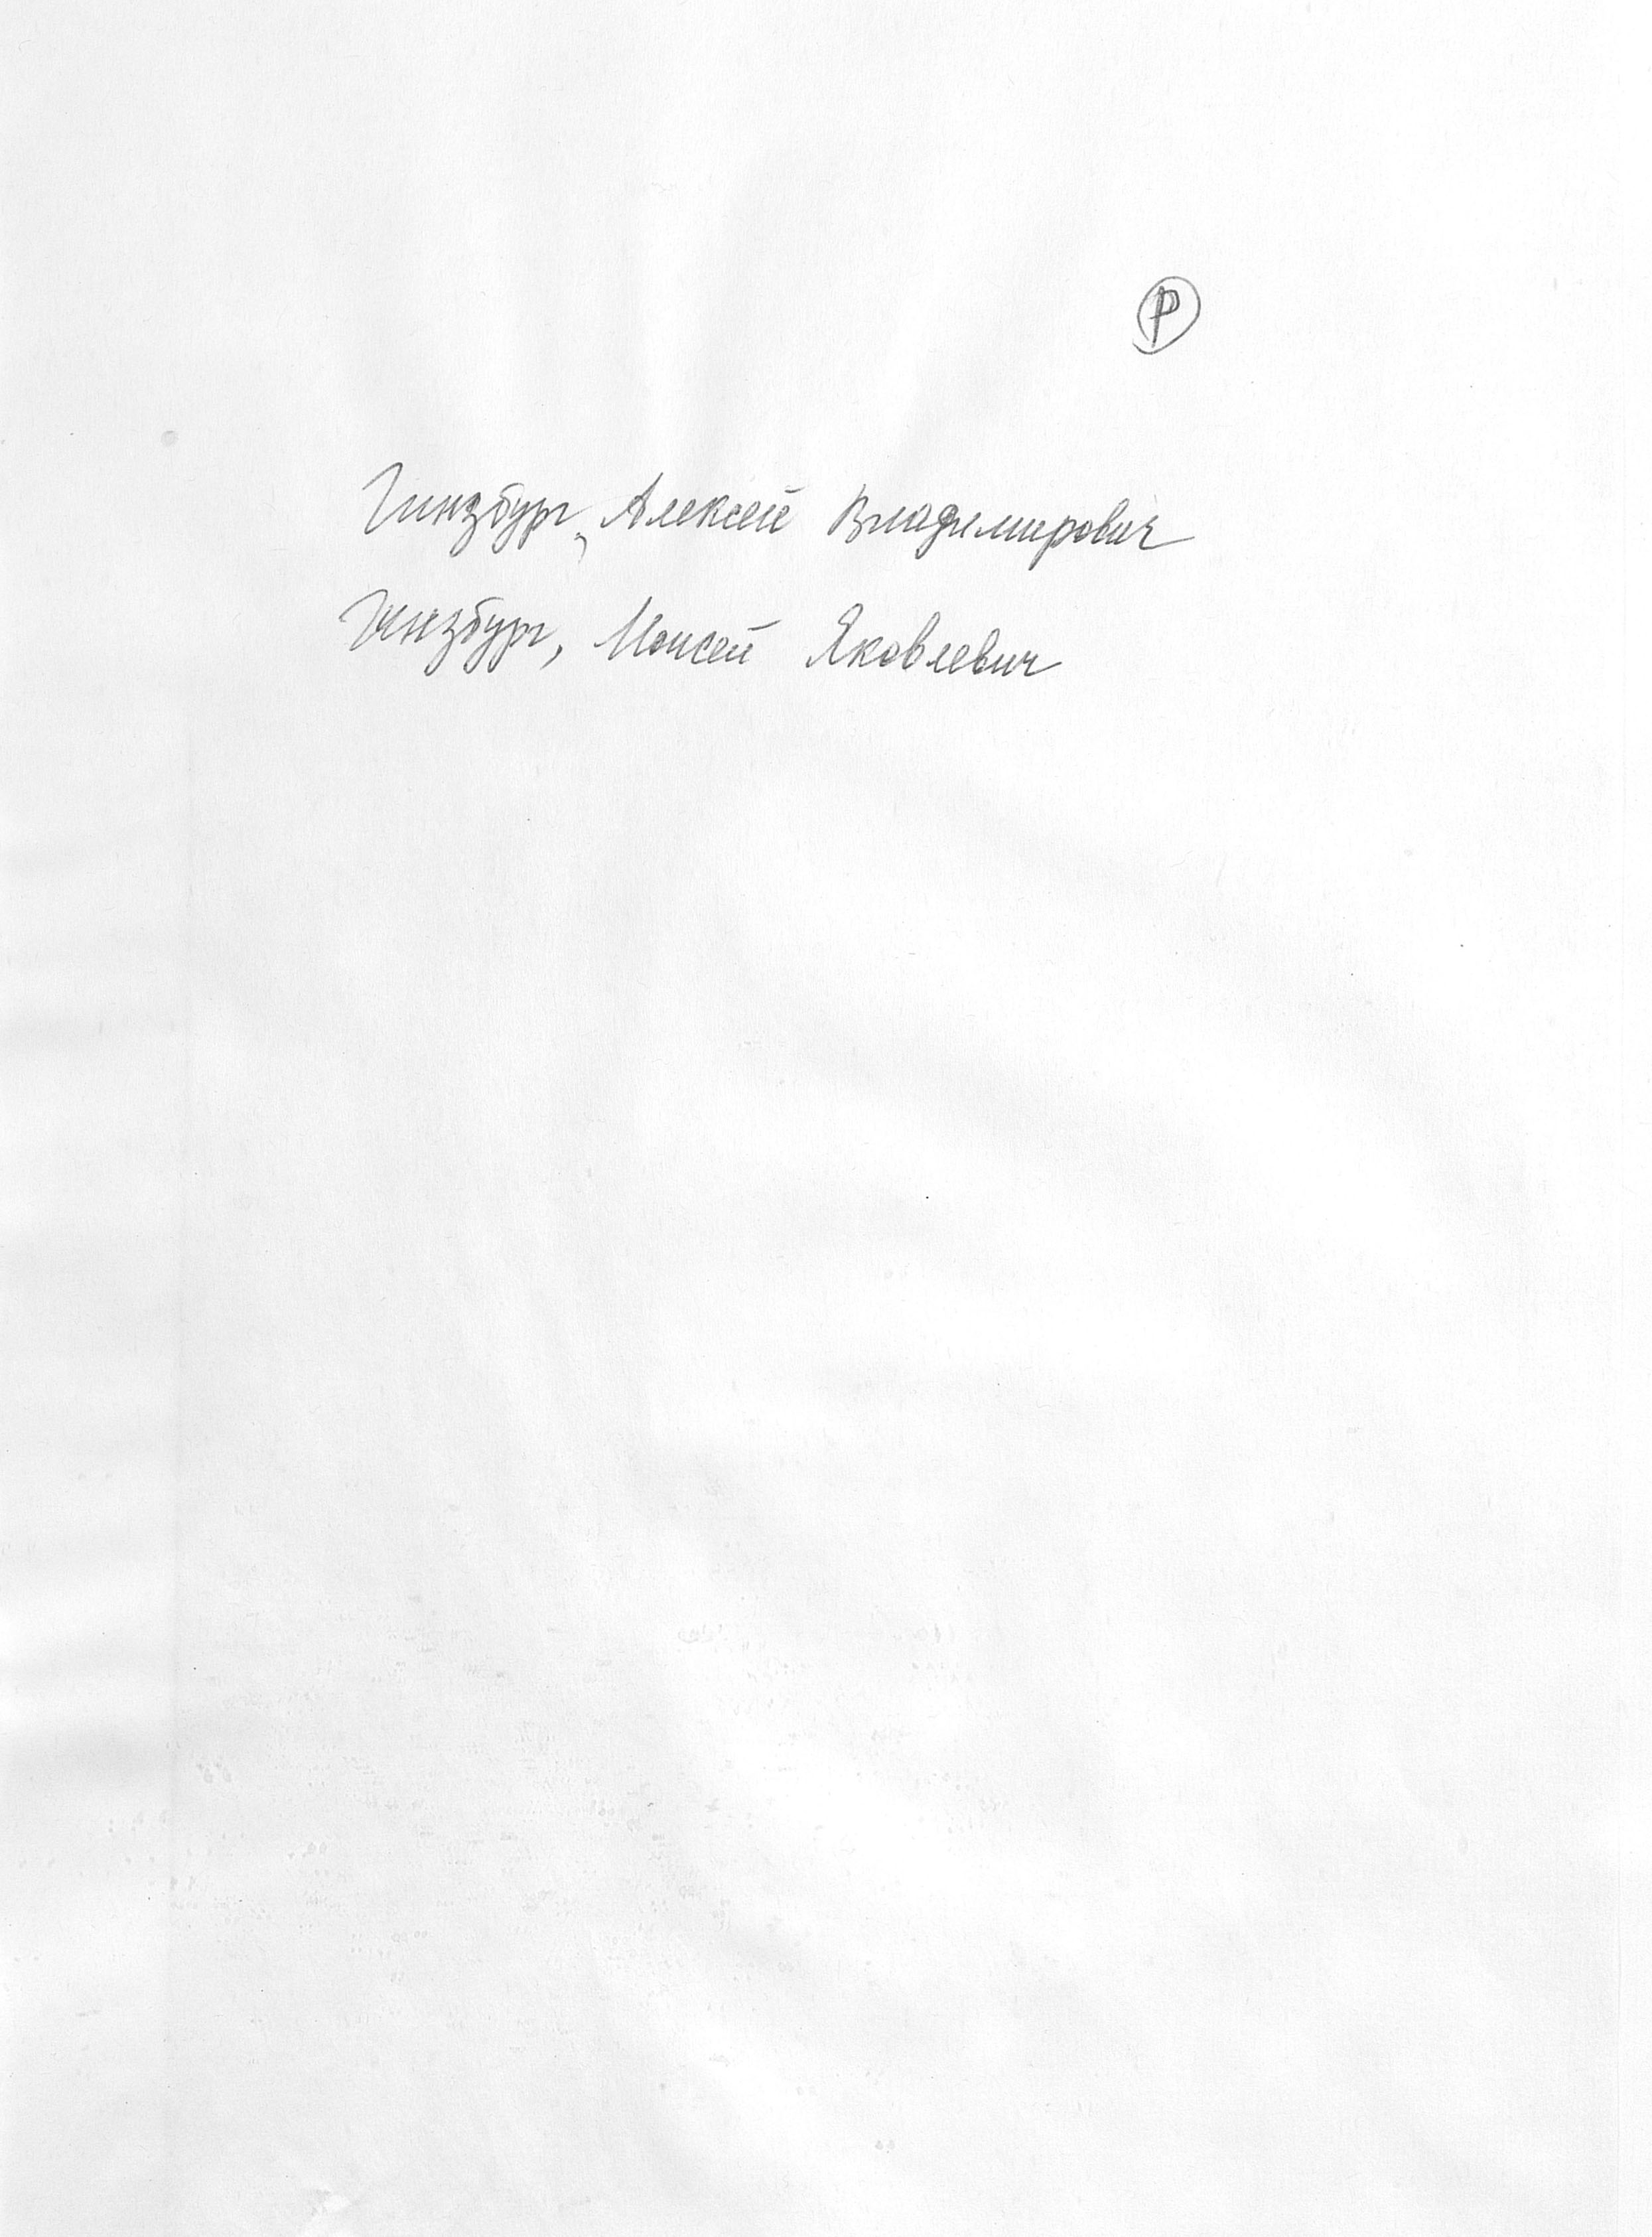 Р
Гинзбург, Алексей Владимирович
Гинзбург, Моисей Яковлевич